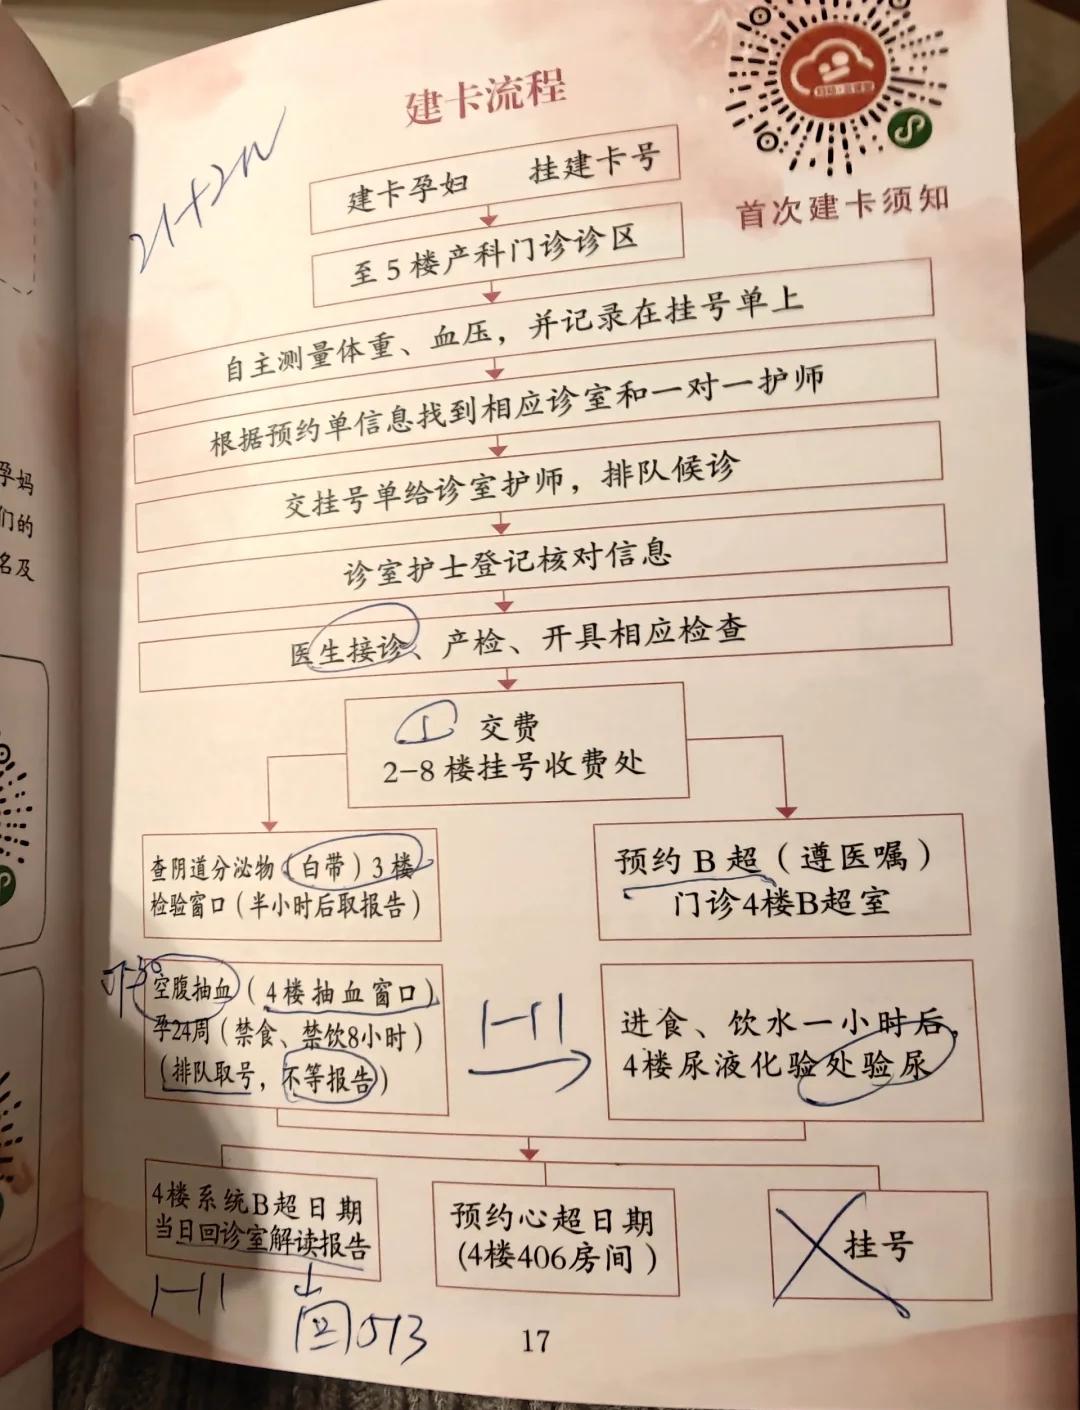 建卡流程
21+2W
首次建卡须知
建卡孕妇 挂建卡号
至5楼产科门诊诊区
自主测量体重、血压，并记录在挂号单上
根据预约单信息找到相应诊室和一对一护师
交挂号单给诊室护师，排队候诊
诊室护士登记核对信息
医生接诊、产检、开具相应检查
① 交费
2-8楼挂号收费处
查阴道分泌物（白带）3楼
检验窗口（半小时后取报告）
预约B超（遵医嘱）
门诊4楼B超室
空腹抽血（4楼抽血窗口）
孕24周（禁食、禁饮8小时）
（排队取号，不等报告）
1-11
进食、饮水一小时后，
4楼尿液化验处验尿
4楼系统B超日期
当日回诊室解读报告
预约心超日期
(4楼406房间）
挂号
1-11
回513
17
孕妈
们的
名及